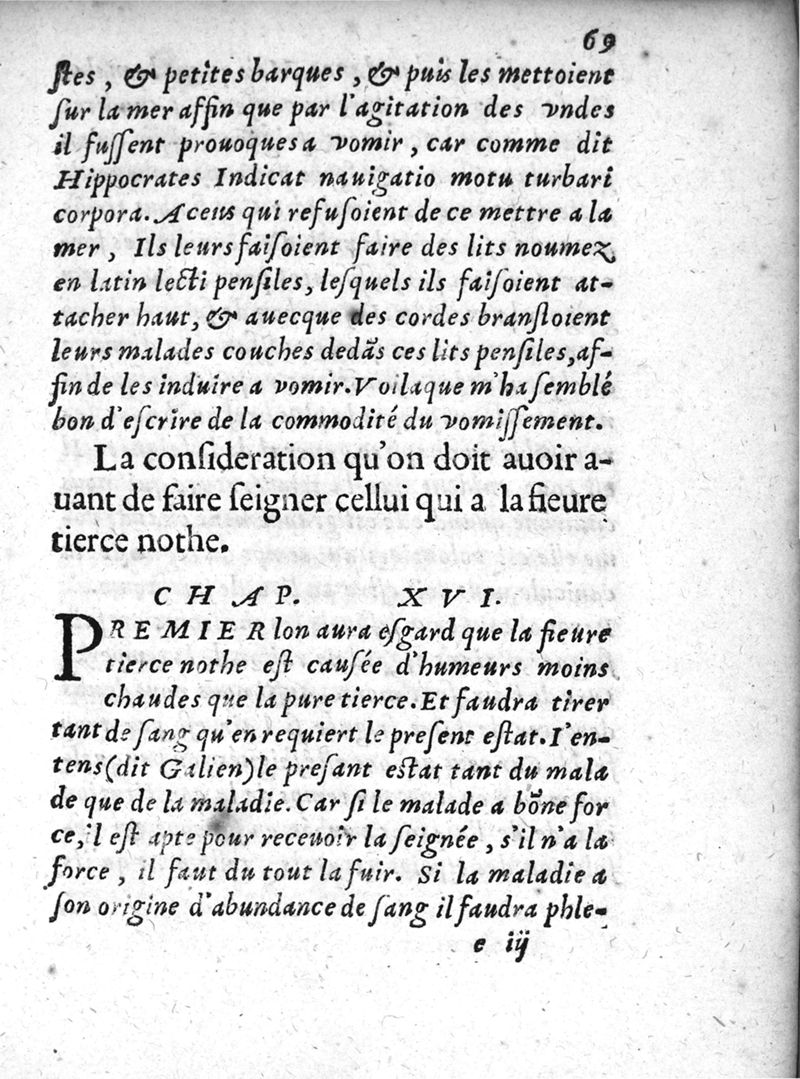 69
ſtes, & petites barques, & puis les mettoient
ſur la mer affin que par l'agitation des vndes
il fuſſent prouoques a vomir, car comme dit
Hippocrates Indicat nauigatio motu turbari
corpora. A ceus qui refuſoient de ce mettre a la
mer, Ils leurs faiſoient faire des lits noumez
en latin lecti penſiles, leſquels ils faiſoient at-
tacher haut, & auecque des cordes branſloient
leurs malades couches dedãs ces lits penſiles, af-
fin de les induire a vomir. Voila que m'ha ſemblé
bon d'eſcrire de la commodité du vomiſſement.
La conſideration qu'on doit auoir a-
uant de faire ſeigner cellui qui a la fieure
tierce nothe.
CHAP. XVI.
PREMIER lon aura eſgard que la fieure
tierce nothe eſt cauſée d'humeurs moins
chaudes que la pure tierce. Et faudra tirer
tant de ſang qu'en requiert le preſent eſtat. I'en-
tens (dit Galien) le preſant eſtat tant du mala
de que de la maladie. Car ſi le malade a bõne for
ce, il eſt apte pour receuoir la ſeignée, s'il n'a la
force, il faut du tout la fuir. Si la maladie a
ſon origine d'abundance de ſang il faudra phle-
e iij